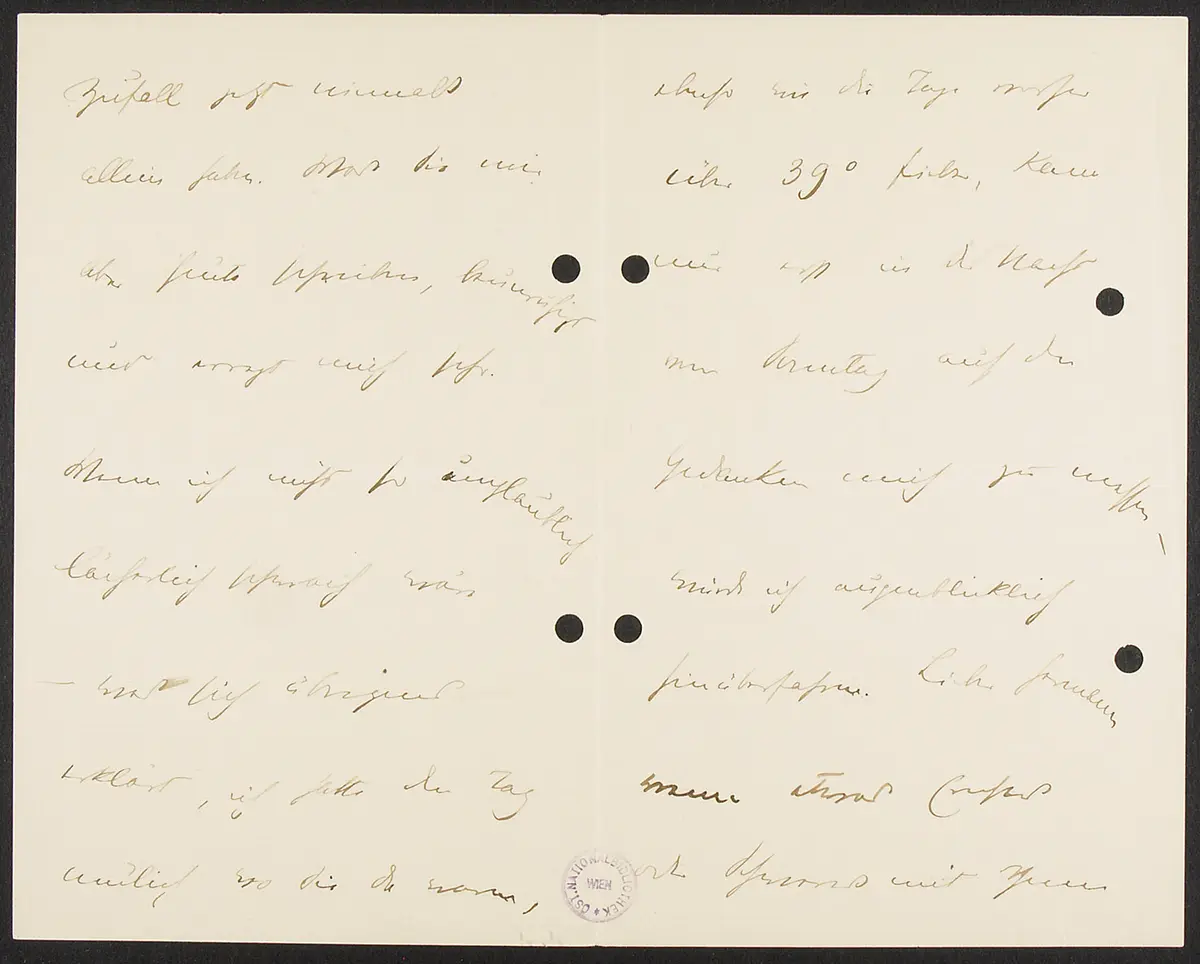 Zufall jetzt niemals
allein sehn. Was Sie mir
aber heute schreiben, beunruhigt
und erregt mich sehr.
Wenn ich nicht so unglaublich
lächerlich schwach wäre
– was sich übrigens
erklärt, ich hatte den Tag
neulich, wo Sie da waren,
ebenso wie die Tage vorher
über 39° Fieber, kam
nur erst in der Nacht
von Sonntag auf den
Gedanken mich zu messen, –
würde ich augenblicklich
hinüberfahren. Lieber Hermann
wenn etwas Ernstes
oder Schweres mit Ihnen
ÖST. NATIONALBIBLIOTHEK
WIEN